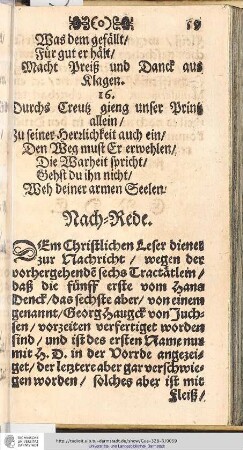 59
Was dem gefällt/
Für gut er hält/
Macht Preiß und Danck aus
Klagen.
16.
Durchs Creutz gieng unser Printz
allein/
Zu seiner Herrlichkeit auch ein/
Den Weg must Er erwehlen/
Die Warheit spricht/
Gehst du ihn nicht/
Weh deiner armen Seelen.
Nach-Rede.
DEm Christlichen Leser dienet
zur Nachricht/ wegen der
vorhergehendē sechs Tractätlein/
daß die fünff erste vom Hans
Denck/ das sechste aber/ von einem
genannt/ Georg Haugck von Juch-
sen/ vorzeiten verfertiget worden
sind/ und ist des ersten Name nur
mit H. D. in der Vorrde angezei-
get/ der letztere aber gar verschwie-
gen worden/ solches aber ist mit
Fleiß/